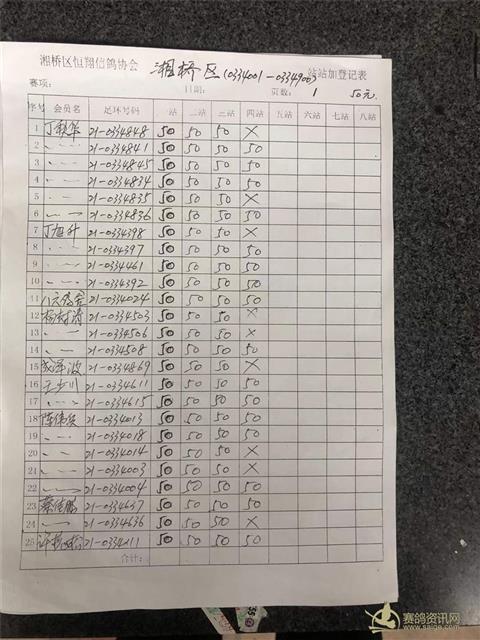 湘桥区恒翔信鸽协会 湘桥区(0334001-0334900) 站站加登记表
赛项: 日期: 页数: 1 50元
序号 会员名 足环号码 一站 二站 三站 四站 五站 六站 七站 八站
1 21-0334848 50 50 50 ×
2 21-0334841 50 50 50 50
3 21-0334845 50 50 50 50
4 21-0334834 50 50 50 50
5 21-0334835 50 50 50 ×
6 21-0334836 50 50 50 50
7 丁旭升 21-0334398 50 50 50 ×
8 21-0334397 50 50 50 50
9 21-0334461 50 50 50 50
10 21-0334392 50 50 50 50
11 21-0334024 50 50 50 50
12 21-0334503 50 50 50 ×
13 21-0334506 50 50 50 ×
14 21-0334508 50 50 50 50
15 21-0334869 50 50 50 ×
16 21-0334611 50 50 50 50
17 21-0334615 50 50 50 50
18 21-0334013 50 50 50 50
19 21-0334018 50 50 50 50
20 21-0334014 50 50 50 ×
21 21-0334003 50 50 50 ×
22 21-0334004 50 50 50 50
23 21-0334637 50 50 50 50
24 21-0334636 50 50 50 ×
25 21-0334211 50 50 50 50
合计:
赛鸽资讯网
www.saige.com